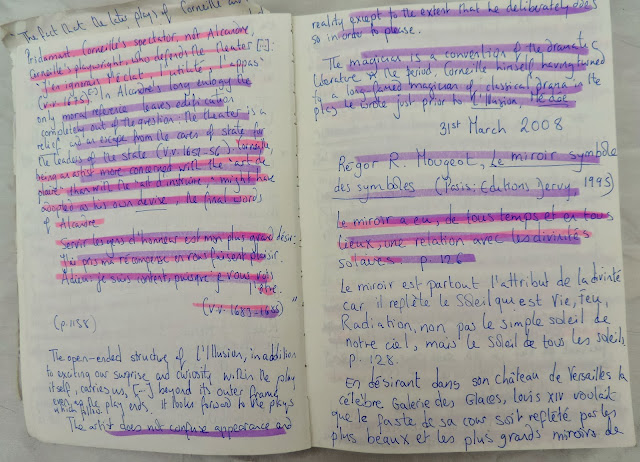 The fact that the later plays of Corneille
Pridamant Corneille's spectator, not Alcandre,
Corneille's playwright, who defends the theater [...]:
"J'en ignorais l'éclat, l'utilité, l'appas"
(v.v. 1675). In Alcandre's long eulogy the
only moral reference leaves edification
completely out of the question: the theater is a
relief and an escape from the cares of state for
the leaders of the state (v.v. 1652-56). Corneille
being an artist more concerned with the "art de
plaire" than with the "art d'instruire" might have
adopted as his own devise the final words
of Alcandre
Servir les gens d'honneur est mon plus grand désir:
J'ai pris ma récompense en vous faisant plaisir.
Adieu: je suis content, puisque je vous vois
l'être.
(v.v. 1683-1686)"
(p.1158)
The open-ended structure of L'Illusion, in addition
to exciting our surprise and curiosity within the play
itself, carries us, [...] beyond its outer frame
even as the play ends. It looks forward to the plays
which follow
The artist does not confuse appearance and
reality except to the extent that he deliberately does
so in order to please.
The magician is a convention of the dramatic
literature of the period, Corneille himself having turned
to a long famed magician of classical drama in the
play he wrote just prior to L'Illusion, Médée
31st March 2008
Régor R. Mougeot, Le miroir symbole
des symboles (Paris: Editions Dervy, 1995)
Le miroir a eu, de tous temps et en tous
lieux, une relation avec les divinités
solaires. p. 126
Le miroir est partout l'attribut de la divinité
car il reflète le Soleil qui est Vie, Feu,
Radiation, non pas le simple soleil de
notre ciel, mais le Soleil de tous les soleils
p. 128.
En désirant dans son château de Versailles la
célèbre Galerie des Glaces, Louis XIV voulait
que le faste de sa cour soit reflété par les
plus beaux et les plus grands miroirs de